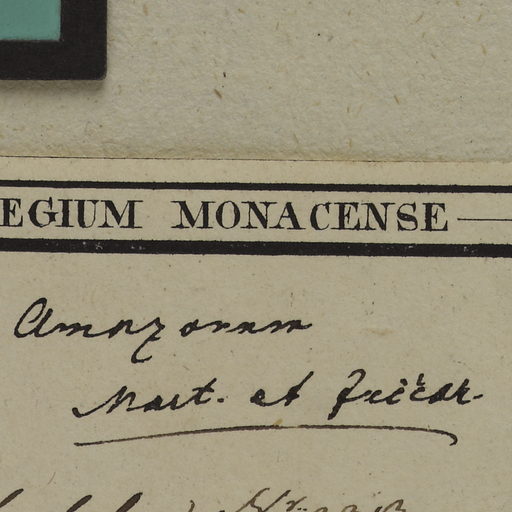 EGIUM MONACENSE
Amazonum
Mart. et Zuccar.